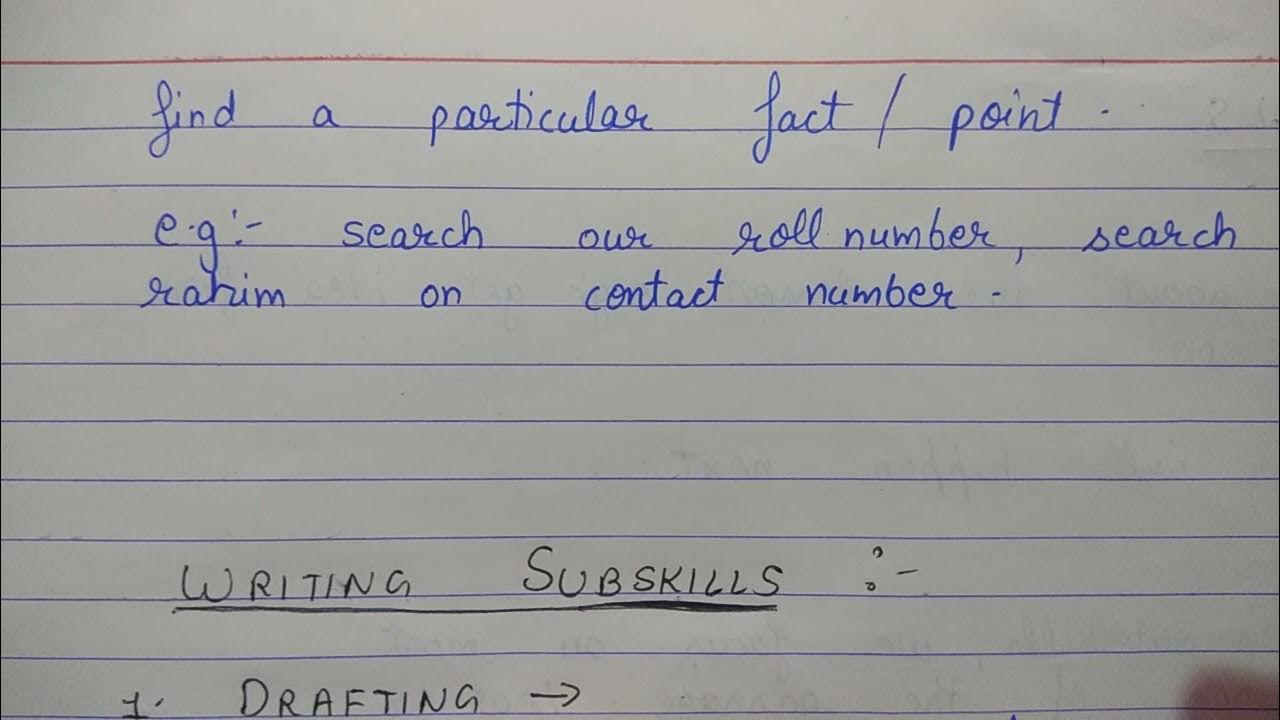 find a particular fact / point.
e.g:- search our roll number, search
rahim on contact number.
WRITING SUBSKILLS :-
1. DRAFTING →